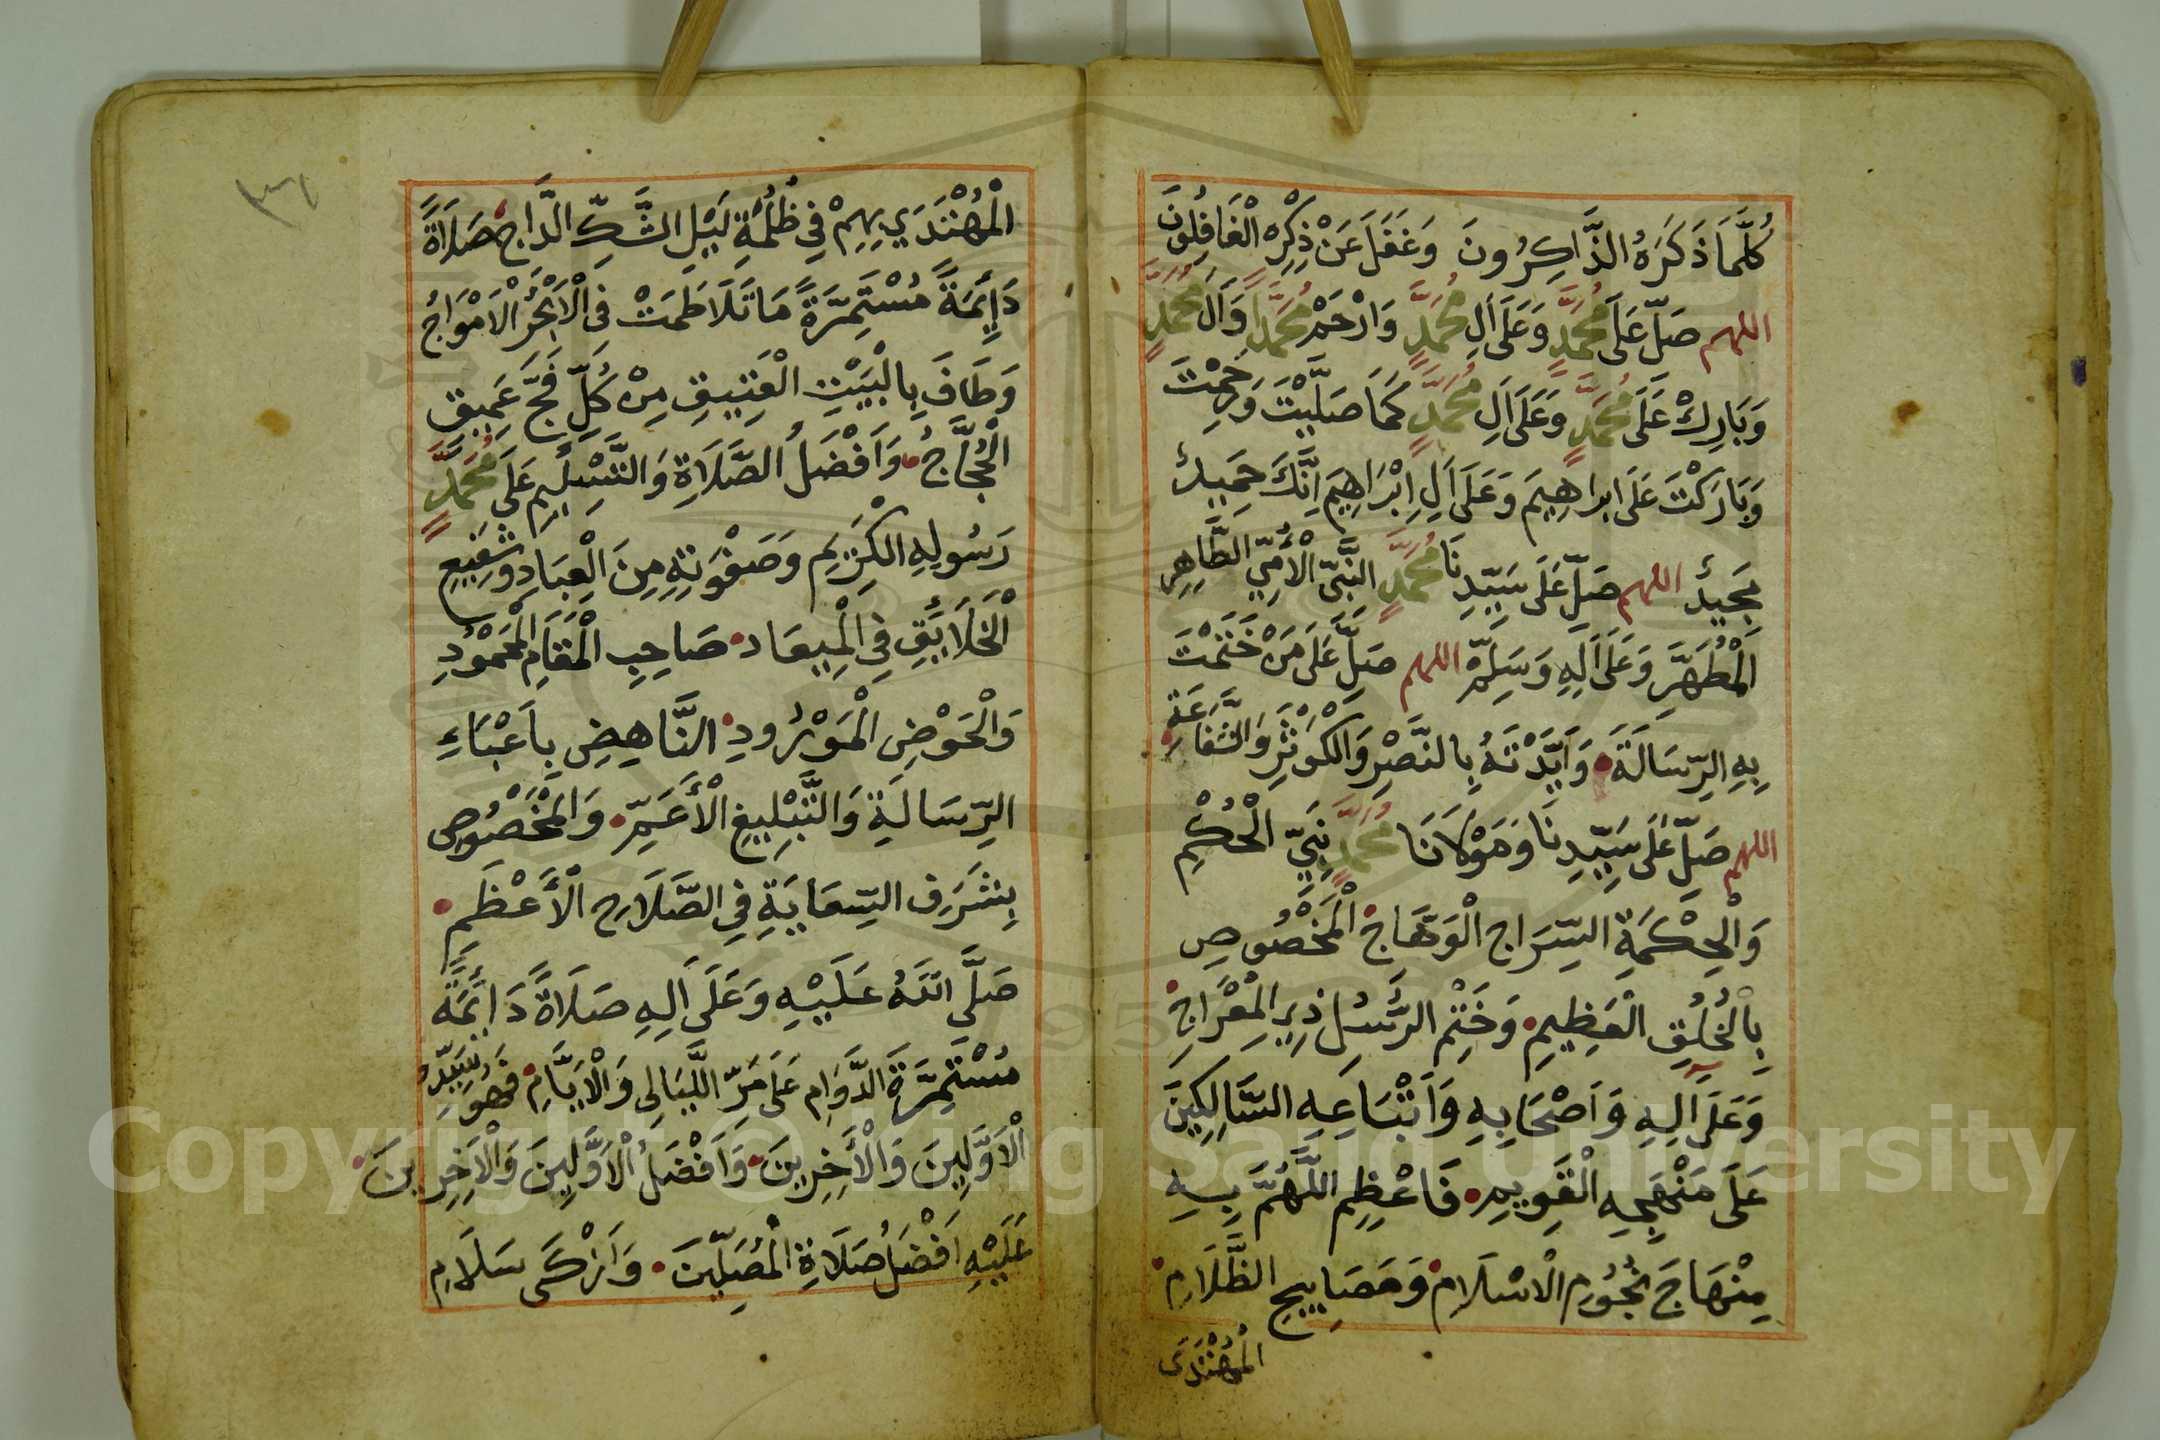 كُلَّمَا ذَكَرَهُ الذَّاكِرُونَ وَغَفَلَ عَنْ ذِكْرِهِ الْغَافِلُونَ
اللهم صَلِّ عَلَى مُحَمَّدٍ وَعَلَى اَلِ مُحَمَّدٍ وَارْحَمْ مُحَمَّدًا وَاَلَ مُحَمَّدٍ
وَبَارِكْ عَلَى مُحَمَّدٍ وَعَلَى اَلِ مُحَمَّدٍ كَمَا صَلَّيْتَ وَرَحِمْتَ
وَبَارَكْتَ عَلَى ابراهِيمَ وَعَلَى اَلِ اِبْرَاهِيمَ اِنَّكَ حَمِيدٌ
مَجِيدٌ اللهم صَلِّ عَلَى سَيِّدِنَا مُحَمَّدٍ النَّبِيِّ الْأُمِّيِّ الطَّاهِرِ
الْمُطَهَّرِ وَعَلَى اَلِهِ وَسَلِّمْ اللهم صَلِّ عَلَى مَنْ خَتَمْتَ
بِهِ الرِّسَالَةَ وَاَيَّدْتَهُ بِالنَّصْرِ وَالْكَوْثَرِ وَالشَّفَاعَةِ
اللهم صَلِّ عَلَى سَيِّدِنَا وَمَوْلَانَا مُحَمَّدٍ نَبِيِّ الْحُكْمِ
وَالْحِكْمَةِ السِّرَاجِ الْوَهَّاجْ الْمَخْصُوصِ
بِالْخُلُقِ الْعَظِيمِ وَخَتْمِ الرُّسُلِ ذِي الْمِعْرَاجِ
وَعَلَى اَلِهِ وَاَصْحَابِهِ وَاَتْبَاعِهِ السَّالِكِينَ
عَلَى مَنْهَجِهِ الْقَوِيمِ فَاَعْظِمِ اللَّهُمَّ بِهِ
مِنْهَاجَ نُجُومِ الْاسْلَامِ وَمَصَابِيحِ الظَّلَامِ
الْمُهْتَدَى
٣٦
الْمُهْتَدَي بِهِمْ فِي ظُلْمَةِ لَيْلِ الشَّكِّ الدَّاجِ صَلَاةً
دَائِمَةً مُسْتَمِرَّةً مَا تَلَاطَمَتْ فِي الْاَبْحُرِ الْاَمْوَاجُ
وَطَافَ بِالْبَيْتِ الْعَتِيقِ مِنْ كُلِّ فَجٍّ عَمِيقٍ
الْحُجَّاجُ وَاَفْضَلُ الصَّلَاةِ وَالتَّسْلِيمِ عَلَى مُحَمَّدٍ
رَسُولِهِ الْكَرِيمِ وَصَفْوَتِهِ مِنَ الْعِبَادِ وَشَفِيعِ
الْخَلَائِقِ فِي الْمِيعَاد صَاحِبِ الْمَقَامِ الْمَحْمُودِ
وَالْحَوْضِ الْمَوْرُودِ النَّاهِضِ بِاَعْبَاءِ
الرِّسَالَةِ وَالتَّبْلِيغِ الْأَعَمِّ وَالْمَخْصُوصِ
بِشَرَفِ السِّعَايَةِ فِي الصَّلَاحِ الْأَعْظَمِ
صَلَّى اللَّهُ عَلَيْهِ وَعَلَى اَلِهِ صَلَاةً دَائِمَةً
مُسْتَمِرَّةَ الدَّوَامِ عَلَى مَرِّ اللَّيَالِي وَالْاَيَّامِ فَهُوَ سَيِّدُ
الْاَوَّلِينَ وَالْأَخِرِينَ وَاَفْضَلُ الْاَوَّلِينَ وَالْاَخِرِينَ
عَلَيْهِ اَفْضَلُ صَلَاةِ الْمُصَلِّينَ وَاَزْكَى سَلَامِ
Copyright © King Saud University